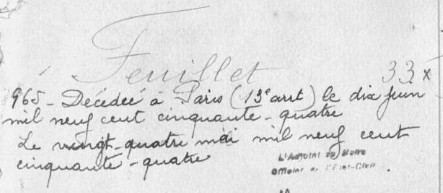 Feuillet
33 x
965 - Décédée à Paris (13e arrt) le dix juin
mil neuf cent cinquante - quatre
Le vingt-quatre mai mil neuf cent
cinquante - quatre
L'Adjoint au Maire
Officier de l'Etat-Civil